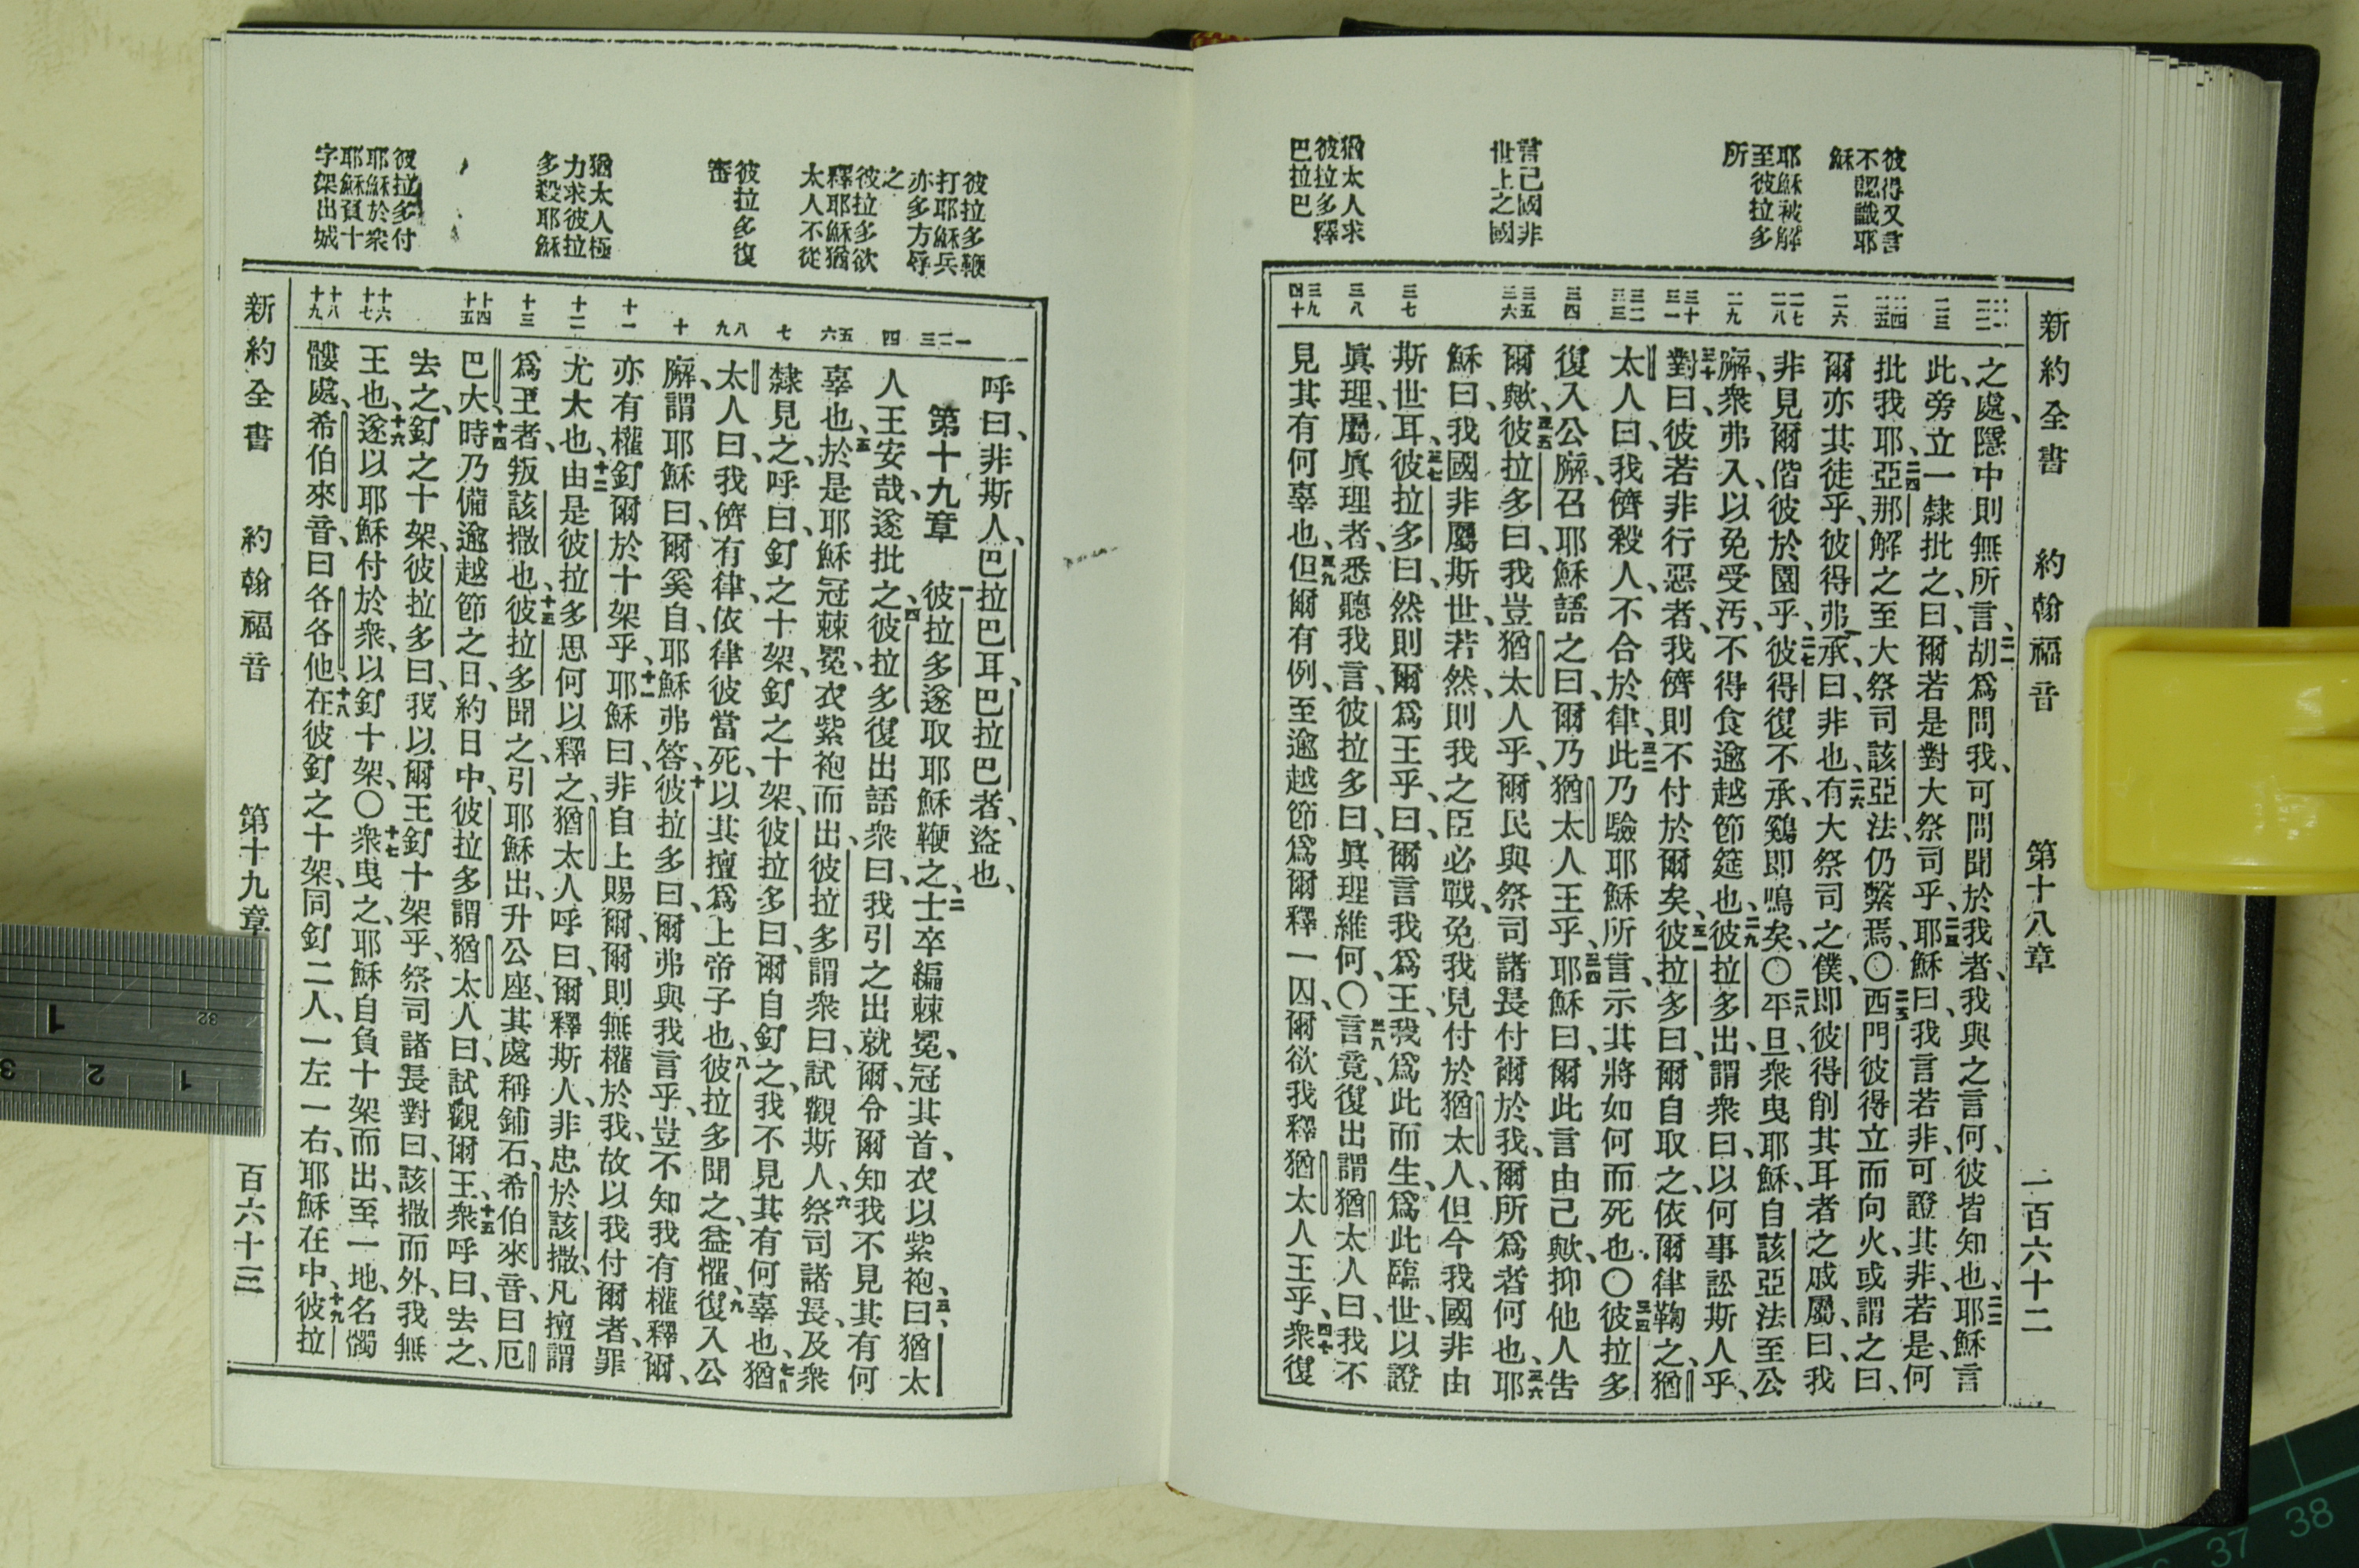 新約全書 約翰福音 第十八章 一百六十二
彼得又言
不認識耶
穌
耶穌被解
至彼拉多
所
言己國非
世上之國
猶太人求
彼拉多釋
巴拉巴
二一 二二
二三
二四 二五
二六
二七 二八
二九
三十 三一
三二 三三
三四
三五 三六
三七
三八
三九 四十
之處、隱中則無所言、二一胡爲問我、可問聞於我者、我與之言何、彼皆知也、二二耶穌言
此、旁立一隸批之、曰、爾若是對大祭司乎、二三耶穌曰、我言若非、可證其非、若是、何
批我耶、二四亞那解之至大祭司該亞法、仍繫焉、〇二五西門彼得立而向火、或謂之曰、
爾亦其徒乎、彼得弗承、曰、非也、二六有大祭司之僕、即彼得削其耳者之戚屬、曰、我
非見爾偕彼於園乎、二七彼得復不承、鷄即鳴矣、〇二八平旦、衆曳耶穌、自該亞法至公
廨、衆弗入、以免受汚、不得食逾越節筵也、二九彼拉多出、謂衆曰、以何事訟斯人乎、
三十對曰、彼若非行惡者、我儕則不付於爾矣、三一彼拉多曰、爾自取之、依爾律鞫之、猶
太人曰、我儕殺人、不合於律、三二此乃驗耶穌所言、示其將如何而死也、〇三三彼拉多
復入公廨、召耶穌語之曰、爾乃猶太人王乎、三四耶穌曰、爾此言由己歟、抑他人告
爾歟、三五彼拉多曰、我豈猶太人乎、爾民與祭司諸長付爾於我、爾所爲者何也、三六耶
穌曰、我國非屬斯世、若然、則我之臣必戰、免我見付於猶太人、但今我國非由
斯世耳、三七彼拉多曰、然則爾爲王乎、曰、爾言我爲王、我爲此而生、爲此臨世、以證
眞理、屬眞理者、悉聽我言、三八彼拉多曰、眞理維何、〇言竟、復出謂猶太人曰、我不
見其有何辜也、三九但爾有例、至逾越節、爲爾釋一囚、爾欲我釋猶太人王乎、四十衆復
彼拉多鞭
打耶穌兵
亦多方辱
之
彼拉多欲
釋耶穌猶
太人不從
彼拉多復
審
猶太人極
力求彼拉
多殺耶穌
彼拉多付
耶穌於衆
耶穌負十
字架出城
一 二 三
四
五 六
七
八 九
十
十一
十二
十三
十四 十五
十六 十七
十八 十九
呼曰、非斯人、巴拉巴耳、巴拉巴者、盜也、
第十九章 一彼拉多遂取耶穌鞭之、二士卒編棘冕、冠其首、衣以紫袍、三曰、猶太
人王安哉、遂批之、四彼拉多復出語衆曰、我引之出就爾、令爾知我不見其有何
辜也、五於是耶穌冠棘冕、衣紫袍而出、彼拉多謂衆曰、試觀斯人、六祭司諸長、及衆
隸見之、呼曰、釘之十架、釘之十架、彼拉多曰、爾自釘之、我不見其有何辜也、七猶
太人曰、我儕有律、依律彼當死、以其擅爲上帝子也、八彼拉多聞之、益懼、九復入公
廨、謂耶穌曰、爾奚自、耶穌弗答、十彼拉多曰、爾弗與我言乎、豈不知我有權釋爾、
亦有權釘爾於十架乎、十一耶穌曰、非自上賜爾、爾則無權於我、故以我付爾者、罪
尤大也、十二由是彼拉多思何以釋之、猶太人呼曰、爾釋斯人、非忠於該撒、凡擅謂
爲王者、叛該撒也、十三彼拉多聞之、引耶穌出、升公座、其處稱鋪石、希伯來音曰厄
巴大、十四時乃備逾越節之日、約日中、彼拉多謂猶太人曰、試觀爾王、十五衆呼曰、去之、
去之、釘之十架、彼拉多曰、我以爾王釘十架乎、祭司諸長對曰、該撒而外、我無
王也、十六遂以耶穌付於衆、以釘十架、〇十七衆曳之、耶穌自負十架而出、至一地、名髑
髏處、希伯來音、曰各各他、十八在彼釘之十架、同釘二人、一左一右、耶穌在中、十九彼拉
新約全書 約翰福音 第十九章 百六十三
1
32
3 2 1
37 38